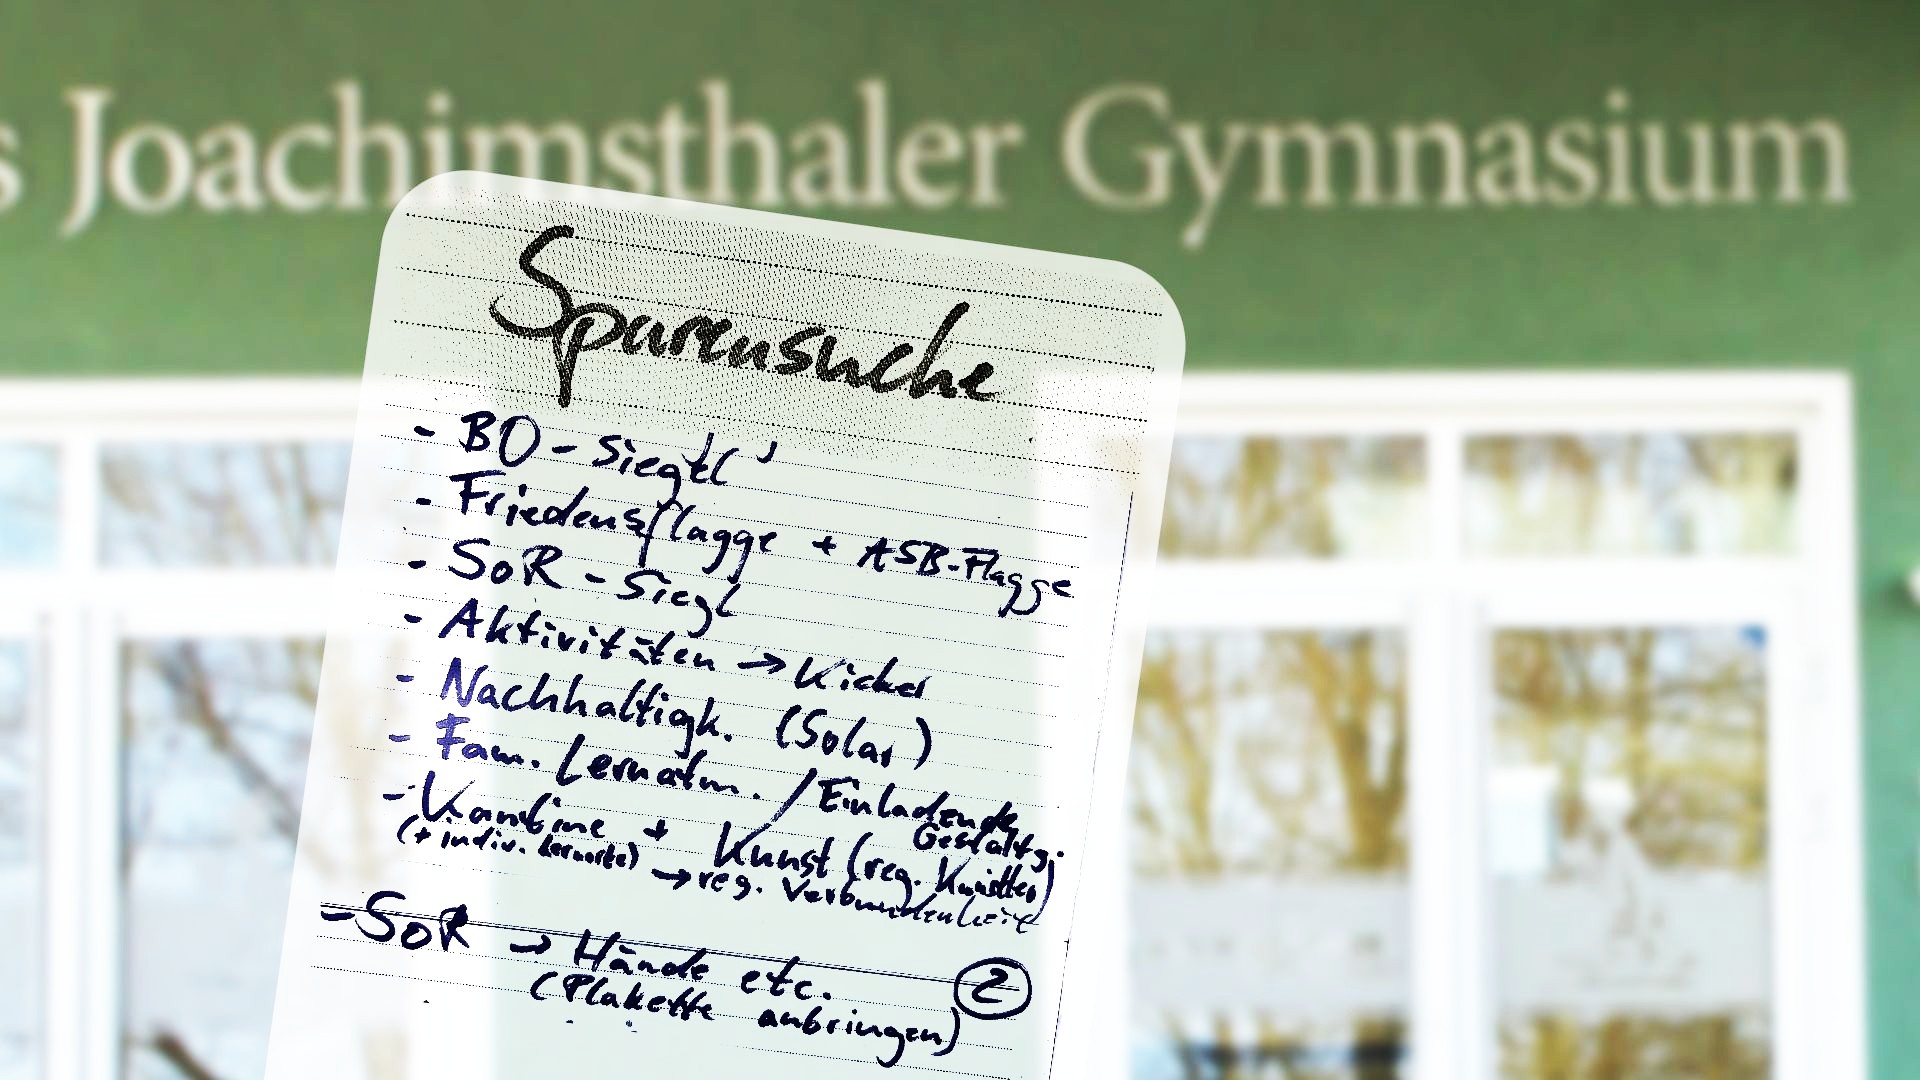 s Joachimsthaler Gymnasium
Spurensuche
- BO - Siegel
- Friedensflagge + ASB-Flagge
- SoR - Siegl
- Aktivitäten → Kicker
- Nachhaltigk. (Solar)
- Fam. Lernatm. / Einladende
Gestaltg.
- Kantine + Kunst (reg. Künstler)
(+ indiv. Lernorte) → reg. Verbundenheit
- SoR → Hände etc.
(Plakette anbringen)
2